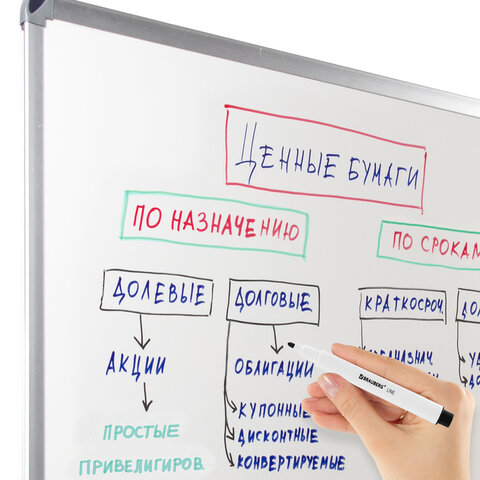 ЦЕННЫЕ БУМАГИ
ПО НАЗНАЧЕНИЮ
ПО СРОКАМ
ДОЛЕВЫЕ
ДОЛГОВЫЕ
КРАТКОСРОЧ.
АКЦИИ
ОБЛИГАЦИИ
КУПОННЫЕ
ДИСКОНТНЫЕ
КОНВЕРТИРУЕМЫЕ
ПРОСТЫЕ
ПРИВЕЛИГИРОВ.
BRAUBERG LINE